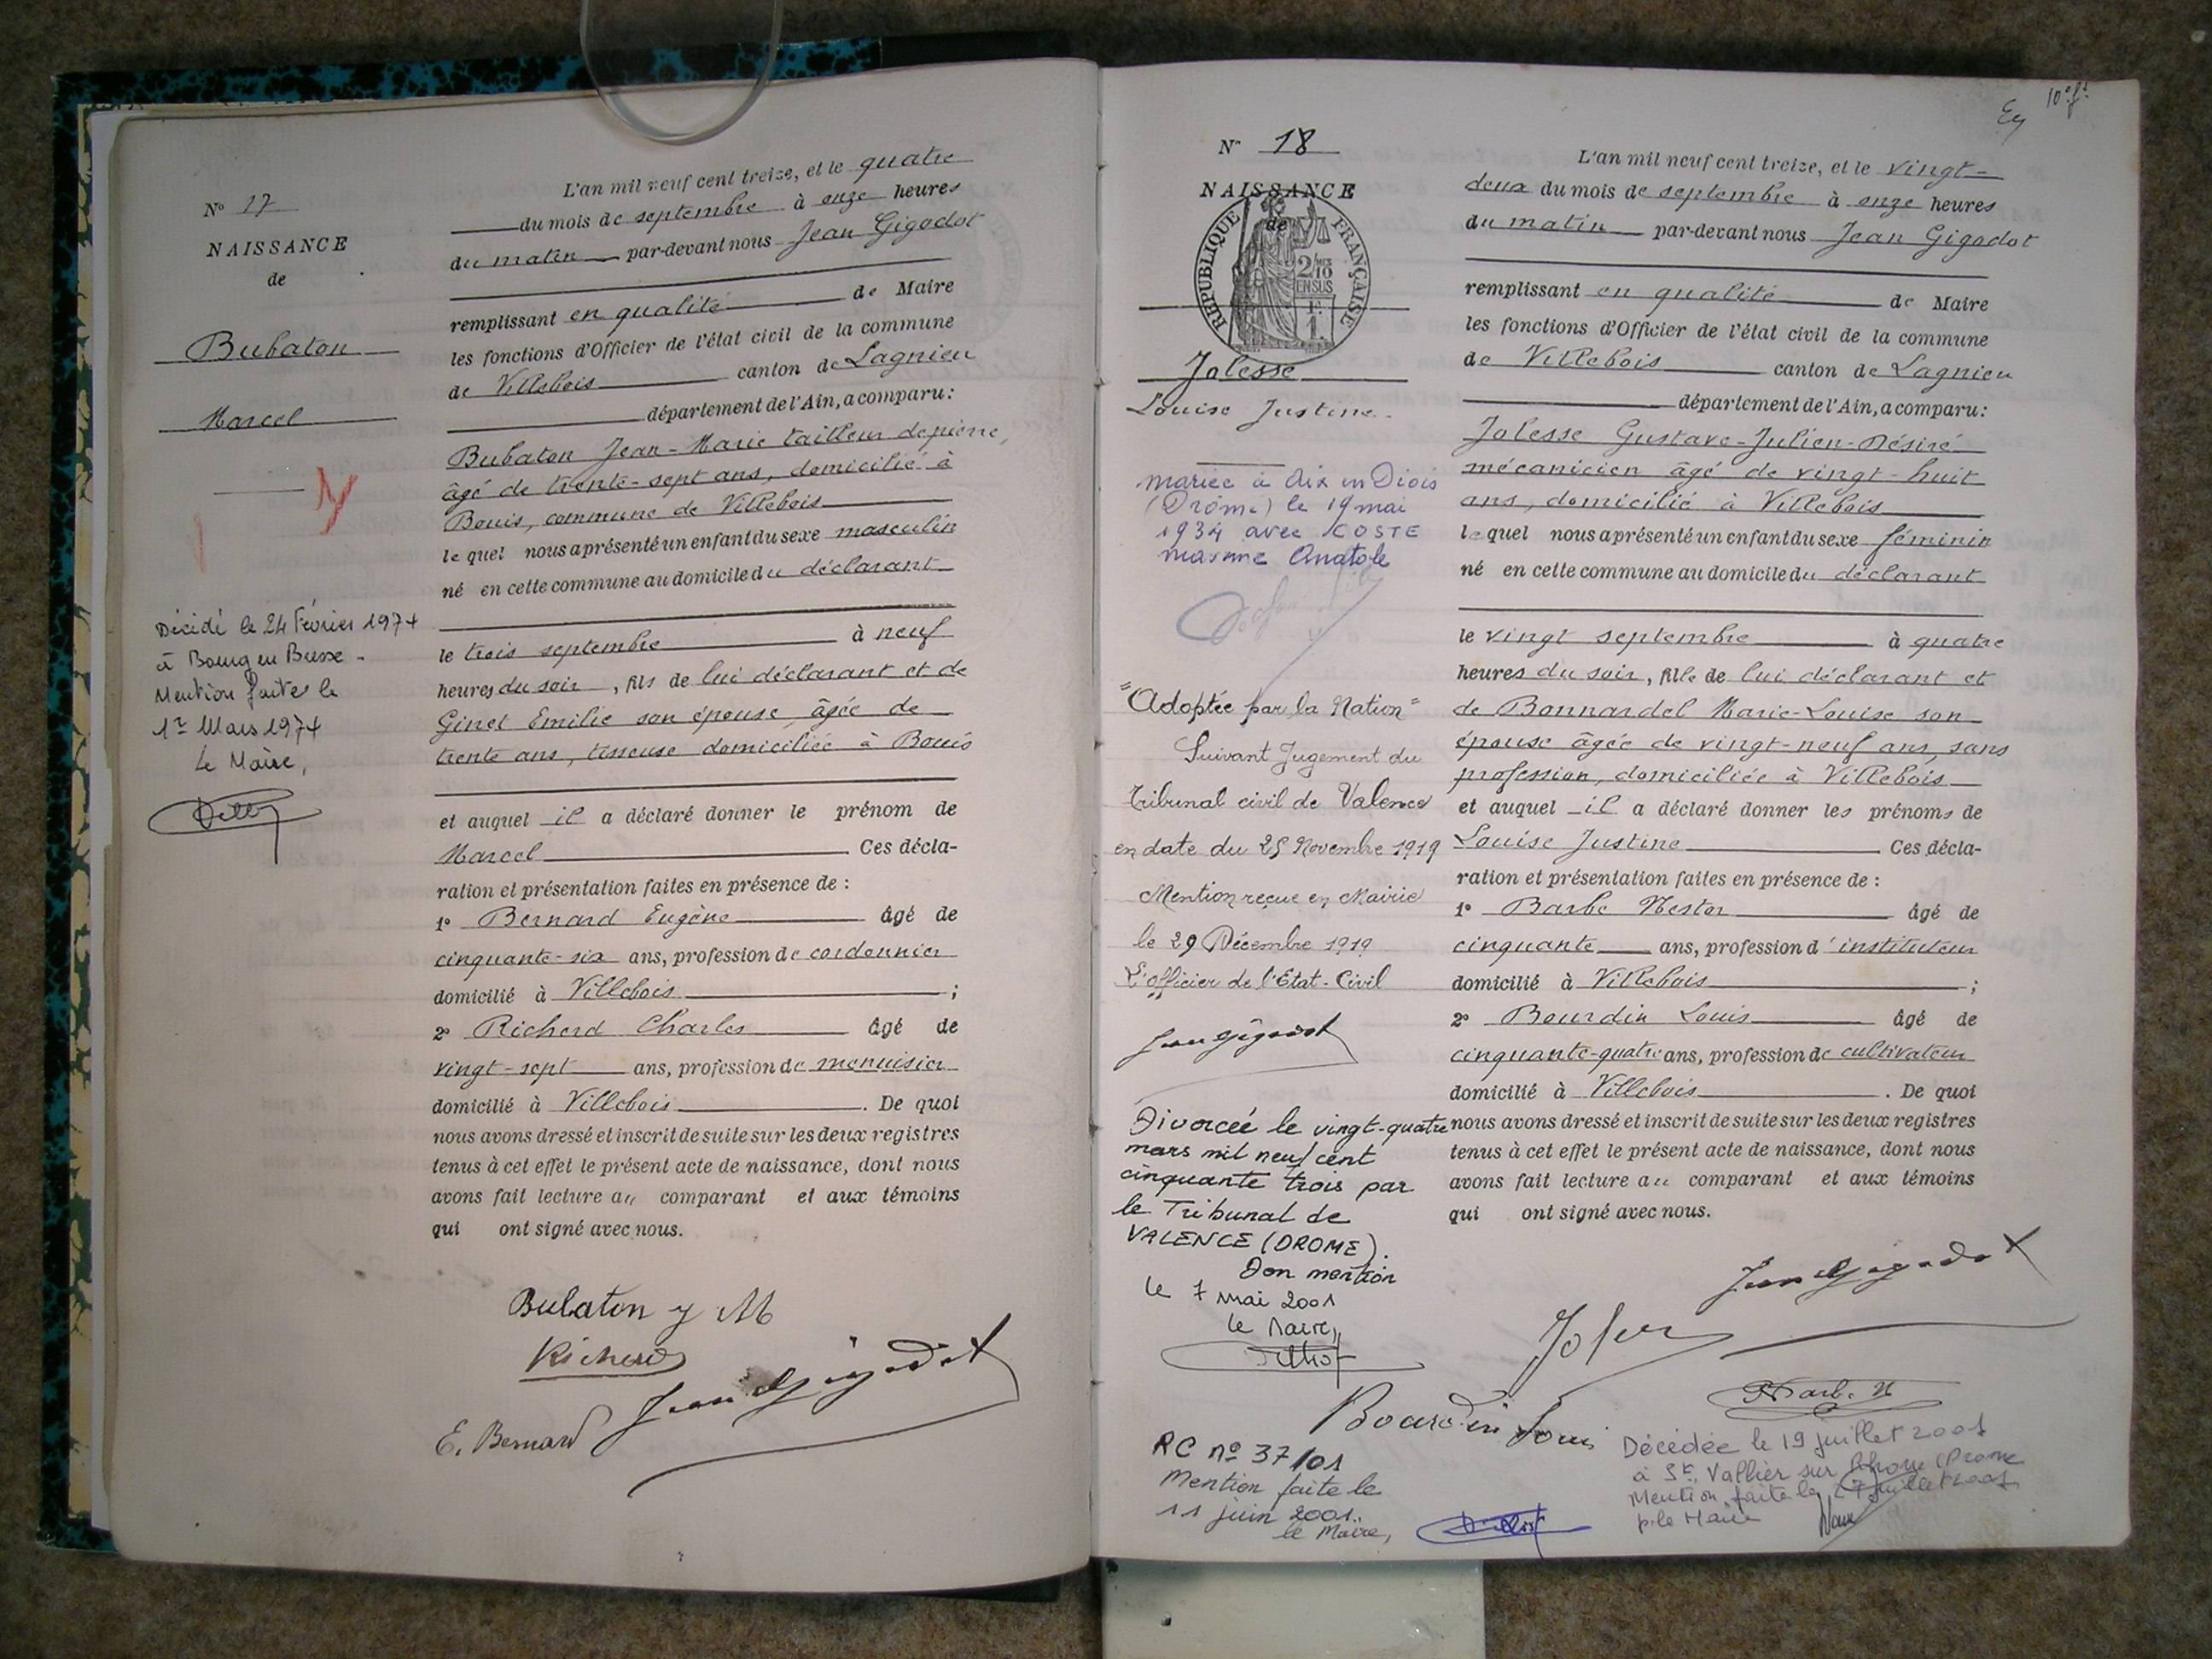 N° 17
NAISSANCE
de
Bubaton
Marcel
Décédé le 24 Février 1974
à Bourg en Bresse -
Mention faite le
1er Mars 1974
Le Maire,
L'an mil neuf cent treize, et le quatre
du mois de septembre à onze heures
du matin par-devant nous Jean Gigodot
remplissant en qualité de Maire
les fonctions d'Officier de l'état civil de la commune
de Villebois canton de Lagnieu
département de l'Ain, a comparu:
Bubaton Jean-Marie tailleur de pierre,
âgé de trente-sept ans, domicilié à
Bouis, commune de Villebois
lequel nous a présenté un enfant du sexe masculin
né en cette commune au domicile du déclarant
le trois septembre à neuf
heures du soir, fils de lui déclarant et de
Ginet Emilie son épouse, âgée de
trente ans, tisseuse domiciliée à Bouis
et auquel il a déclaré donner le prénom de
Marcel Ces décla-
ration et présentation faites en présence de :
1° Bernard Eugène âgé de
cinquante-six ans, profession de cordonnier
domicilié à Villebois ;
2° Richerd Charles âgé de
vingt-sept ans, profession de menuisier
domicilié à Villebois . De quoi
nous avons dressé et inscrit de suite sur les deux registres
tenus à cet effet le présent acte de naissance, dont nous
avons fait lecture au comparant et aux témoins
qui ont signé avec nous.
Bubaton J M
Richerd
Jean Gigodot
E. Bernard
10e ft
N° 18
NAISSANCE
de
REPUBLIQUE FRANÇAISE
2/10
EN SUS
1.
Jolesse
Louise Justine
mariée à Aix en Diois
(Drôme) le 19 mai
1934 avec COSTE
Maxime Anatole
"Adoptée par la Nation"
Suivant Jugement du
Tribunal civil de Valence
en date du 25 Novembre 1919
Mention reçue en Mairie
le 29 Décembre 1919
L'officier de l'Etat-Civil
Jean Gigodot
Divorcée le vingt-quatre
mars mil neuf cent
cinquante trois par
le Tribunal de
VALENCE (DROME).
Don mention
le 7 mai 2001
le Maire,
RC n° 37/01
Mention faite le
11 juin 2001.
le Maire,
L'an mil neuf cent treize, et le vingt-
deux du mois de septembre à onze heures
du matin par-devant nous Jean Gigodot
remplissant en qualité de Maire
les fonctions d'Officier de l'état civil de la commune
de Villebois canton de Lagnieu
département de l'Ain, a comparu:
Jolesse Gustave-Julien-Désiré
mécanicien âgé de vingt-huit
ans, domicilié à Villebois
lequel nous a présenté un enfant du sexe féminin
né en cette commune au domicile du déclarant
le vingt septembre à quatre
heures du soir, fille de lui déclarant et
de Bonnardel Marie-Louise son
épouse âgée de vingt-neuf ans, sans
profession, domiciliée à Villebois
et auquel il a déclaré donner les prénoms de
Louise Justine Ces décla-
ration et présentation faites en présence de :
1° Barbe Nestor âgé de
cinquante ans, profession d'instituteur
domicilié à Villebois ;
2° Bourdin Louis âgé de
cinquante-quatre ans, profession de cultivateur
domicilié à Villebois . De quoi
nous avons dressé et inscrit de suite sur les deux registres
tenus à cet effet le présent acte de naissance, dont nous
avons fait lecture au comparant et aux témoins
qui ont signé avec nous.
Jean Gigodot
Barbe N
Bourdin Louis
Décédée le 19 juillet 2001
à St. Vallier sur Rhône (Drome
Mention faite le 27 juillet 2001
p. le Maire